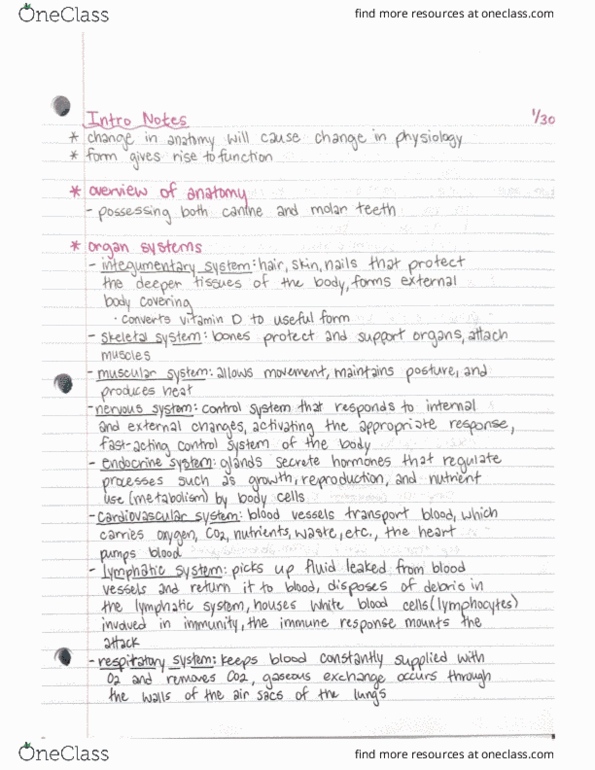 OneClass
find more resources at oneclass.com
Intro Notes
1/30
* change in anatomy will cause change in physiology
* form gives rise to function
* overview of anatomy
- possessing both canine and molar teeth
* organ systems
- integumentary system: hair, skin, nails that protect
the deeper tissues of the body, forms external
body covering
· converts vitamin D to useful form
- skeletal system: bones protect and support organs, attach
muscles
- muscular system: allows movement, maintains posture, and
produces heat
- nervous system: control system that responds to internal
and external changes, activating the appropriate response,
fast-acting control system of the body
- endocrine system: glands secrete hormones that regulate
processes such as growth, reproduction, and nutrient
use (metabolism) by body cells
- cardiovascular system: blood vessels transport blood, which
carries oxygen, CO2, nutrients, waste, etc., the heart
pumps blood
- lymphatic system: picks up fluid leaked from blood
vessels and return it to blood, disposes of debris in
the lymphatic system, houses white blood cells (lymphocytes)
involved in immunity, the immune response mounts the
attack
- respiratory system: keeps blood constantly supplied with
O2 and removes CO2, gaseous exchange occurs through
the walls of the air sacs of the lungs
OneClass
find more resources at oneclass.com